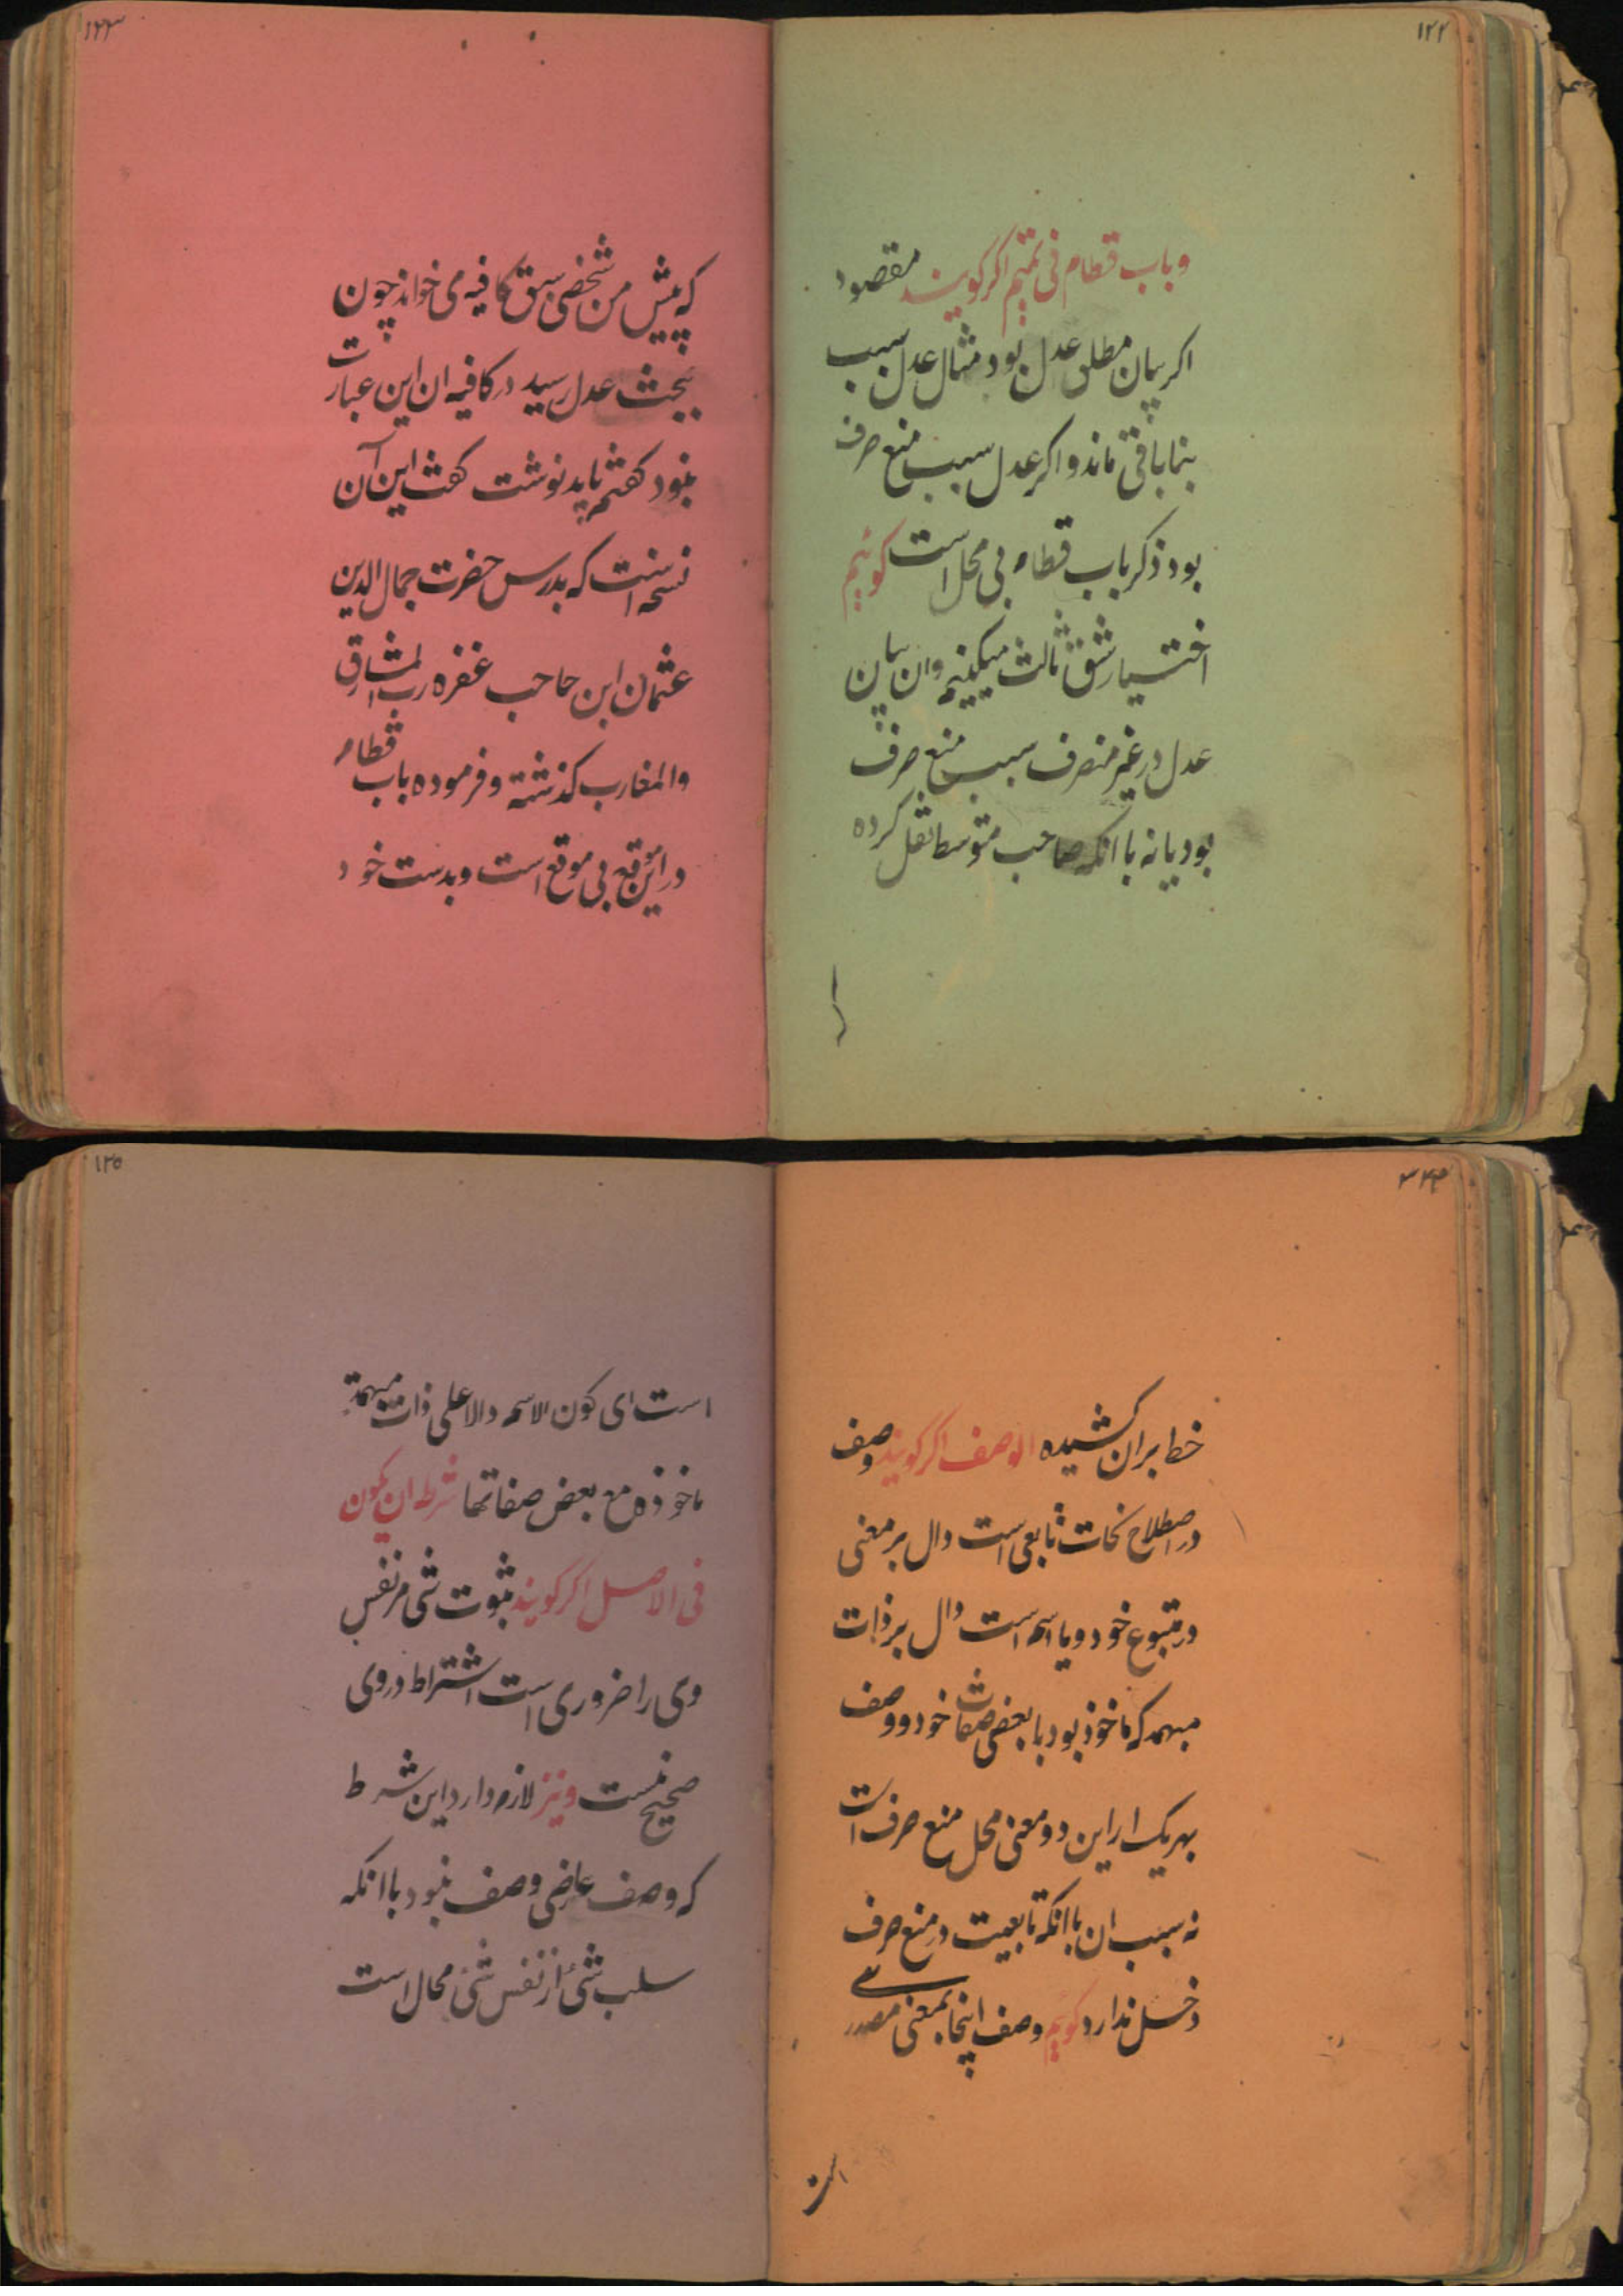 ۱۲۲
وباب قطام فی تمیم اکر کویند مقصود
اکر بیان مطلق عدل بود مثال عدل سبب
بنا باقی ماند و اکر عدل سبب منع صرف
بود ذکر باب قطام بی محل است کوئیم
اختیار شق ثالث میکنیم و ان بیان
عدل در غیر منصرف سبب منع صرف
بود یا نه با انکه صاحب متوسط نقل کرده
۱۲۳
که پیش من شخصی سبق کافیه می خواند چون
ببحث عدل رسید در کافیه ان این عبارت
نبود کفتم باید نوشت کفت این آن
نسخه است که بدرس حضرت جمال الدین
عثمان ابن حاجب غفره رب المشارق
والمغارب کذشته و فرموده باب قطام
در این موقع بی موقع است و بدست خود
خط بران کشیده الوصف اکر کویند وصف
در اصطلاح نحات تابعی است دال بر معنی
در متبوع خود و یا اسم است دال بر ذات
مبهمه که ماخوذ بود با بعضی صفات خود و وصف
بهر یک از این دو معنی محل منع صرف است
نه سبب ان با انکه تابعیت در منع صرف
دخل ندارد کوئیم وصف اینجا بمعنی مصدرے
است
۱۲۵
است ای کون الاسم دالا علی ذات مبهمة
ماخوذه مع بعض صفاتها شرطه ان یکون
فی الاصل اکر کویند ثبوت شی مر نفس
وی را ضروری است اشتراط در وی
صحیح نیست و نیز لازم دارد این شرط
که وصف عارضی وصف نبود با انکه
سلب شئ از نفس شئ محال است